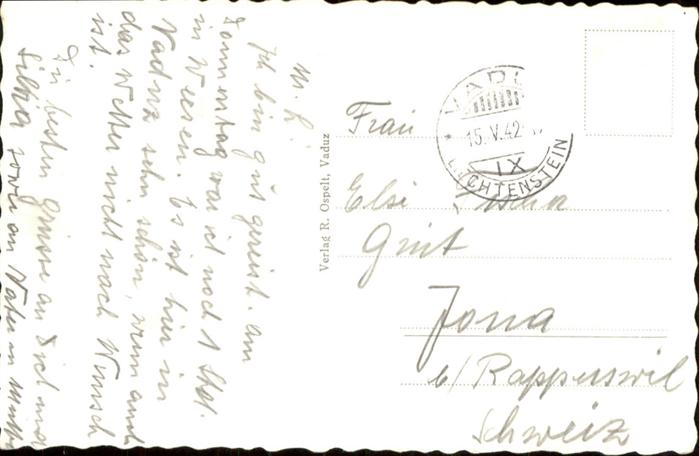 M. L.
Ich bin gut gereist. Am
Sonntag war ich noch 1 Std.
in Wiesen. Es ist hier in
Vaduz sehr schön, wenn auch
das Wetter nicht nach Wunsch
ist.
Die besten Grüsse an Dich und
Silvia sowie an Vater u. Mutter
Verlag R. Ospelt, Vaduz
VADUZ
15.V.42
IX
LIECHTENSTEIN
Frau
Elsi
Grüt
Jona
b/Rapperswil
Schweiz